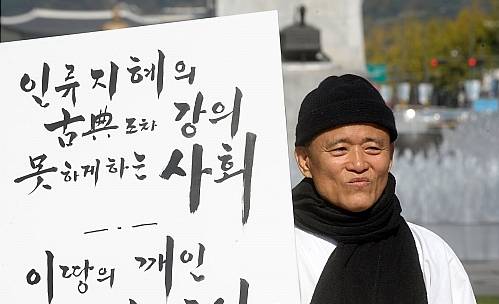 인류 지혜의
古典 조차 강의
못하게하는 사회
이땅의 깨인